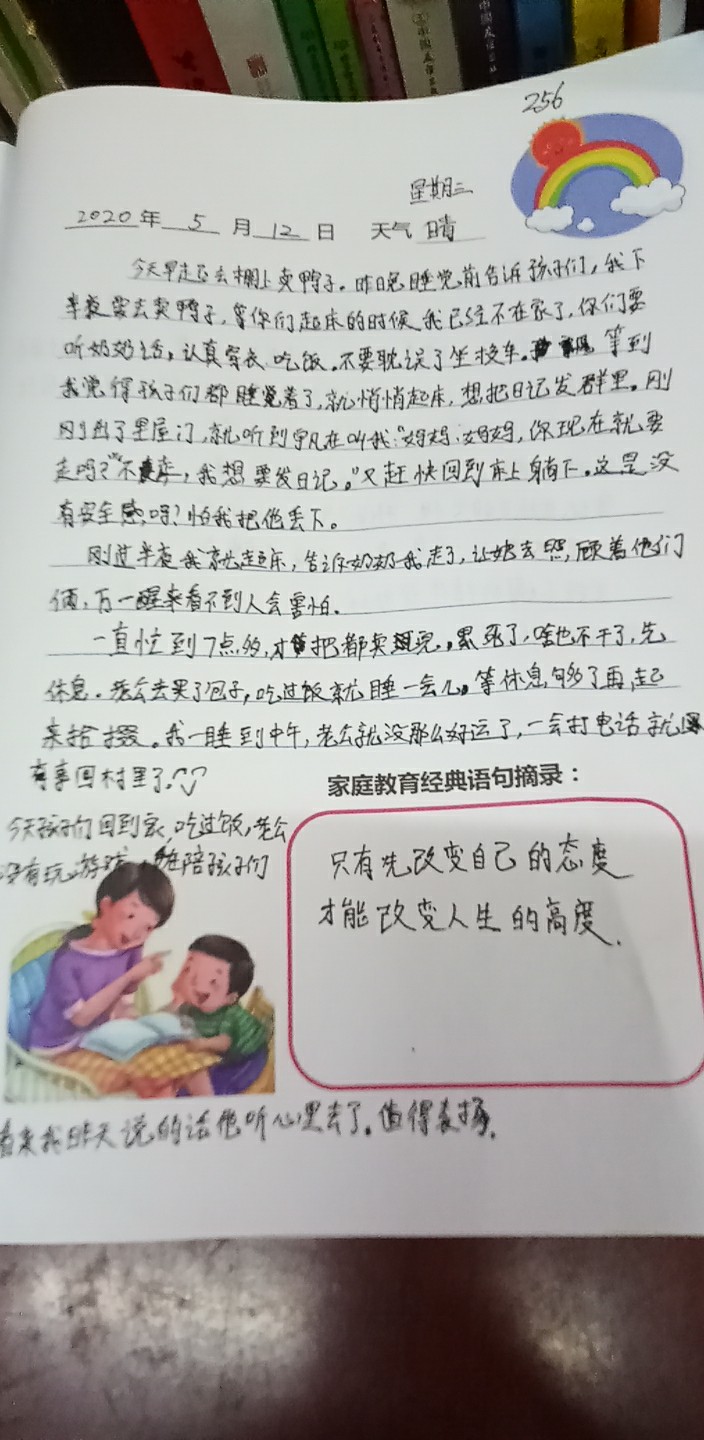 256
星期三
2020年 5 月 12 日 天气 晴
今天早起要去棚上卖鸭子。昨晚睡觉前告诉孩子们，我下
半夜要去卖鸭子，等你们起床的时候我已经不在家了，你们要
听奶奶话，认真穿衣吃饭。不要耽误了坐校车。等到
我觉得孩子们都睡着了，就悄悄起床，想把日记发群里。刚
刚出了里屋门，就听到宇凡在叫我："妈妈，妈妈，你现在就要
走吗？""不走，我想要发日记。"又赶快回到床上躺下。这是没
有安全感吗？怕我把他丢下。
刚过半夜我就起床，告诉奶奶我走了，让她去照顾着他们
俩，万一醒来看不到人会害怕。
一直忙到7点多，才把鸭卖完。累死了，啥也不干了，先
休息。老公去买了包子，吃过饭就睡一会儿。等休息够了再起
来拾掇。我一睡到中午，老公就没那么好运了，一会打电话就
有事回村里了。
家庭教育经典语句摘录：
今天孩子们回到家，吃过饭，老公
没有玩游戏，陪孩子们
只有先改变自己的态度
才能改变人生的高度。
看来我昨天说的话他听心里去了。值得表扬。